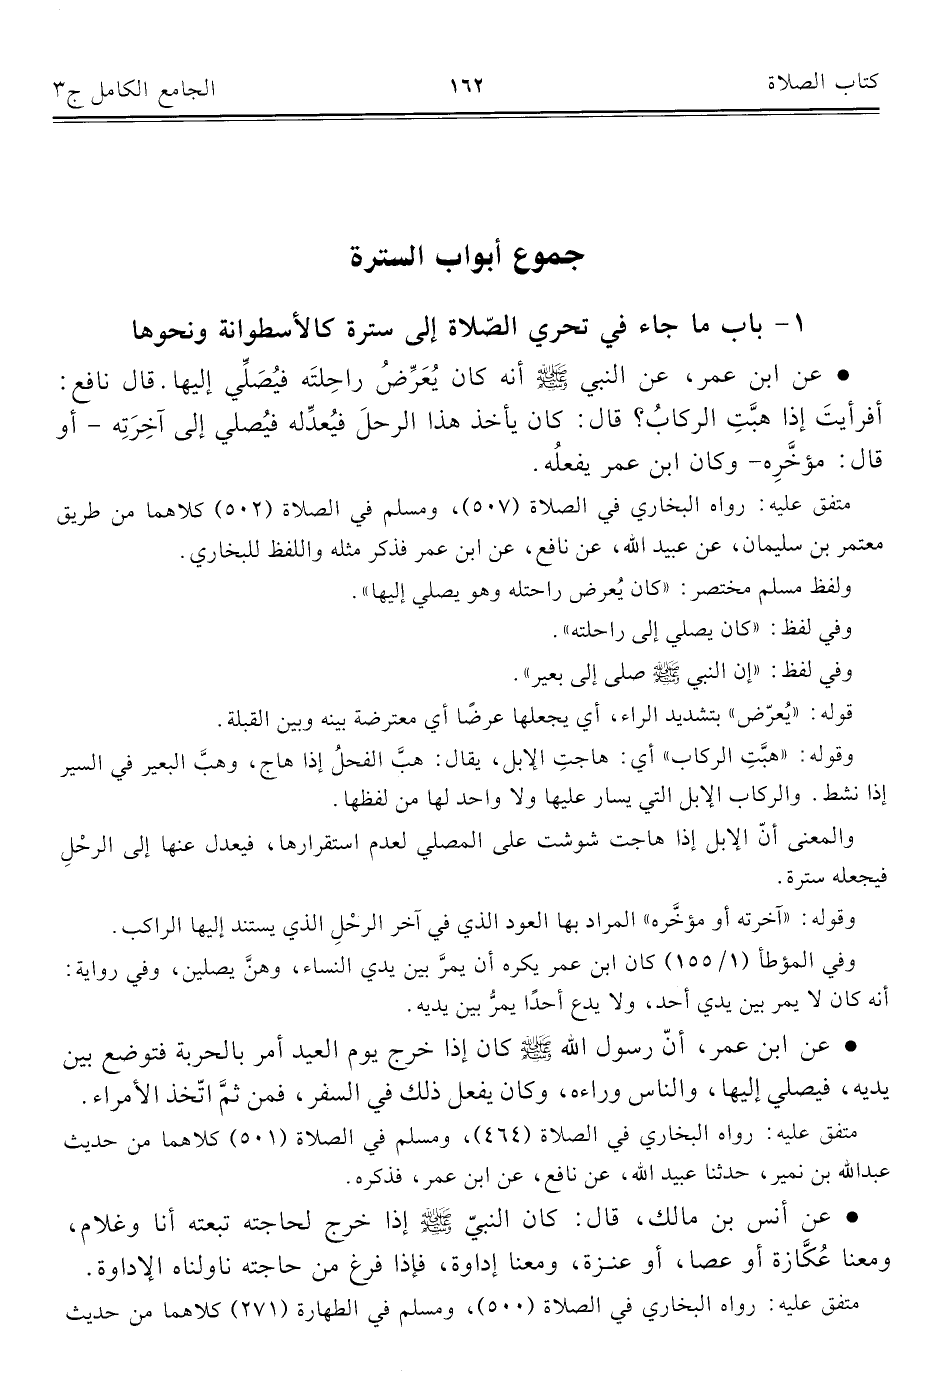 كتاب الصلاة ١٦٢ الجامع الكامل ج٣
جموع أبواب السترة
١- باب ما جاء في تحري الصّلاة إلى سترة كالأسطوانة ونحوها
• عن ابن عمر، عن النبي ﷺ أنه كان يُعَرِّضُ راحِلتَه فيُصَلِّي إليها. قال نافع:
أفرأيتَ إذا هبَّتِ الركابُ؟ قال: كان يأخذ هذا الرحلَ فيُعدِّله فيُصلي إلى آخِرَتِه - أو
قال: مؤخَّرِه- وكان ابن عمر يفعلُه.
متفق عليه: رواه البخاري في الصلاة (٥٠٧)، ومسلم في الصلاة (٥٠٢) كلاهما من طريق
معتمر بن سليمان، عن عبيد الله، عن نافع، عن ابن عمر فذكر مثله واللفظ للبخاري.
ولفظ مسلم مختصر: «كان يُعرض راحتله وهو يصلي إليها».
وفي لفظ: «كان يصلي إلى راحلته».
وفي لفظ: «إن النبي ﷺ صلى إلى بعير».
قوله: «يُعرّض» بتشديد الراء، أي يجعلها عرضًا أي معترضة بينه وبين القبلة.
وقوله: «هبَّتِ الركاب» أي: هاجتِ الإبل، يقال: هبَّ الفحلُ إذا هاج، وهبَّ البعير في السير
إذا نشط. والركاب الإبل التي يسار عليها ولا واحد لها من لفظها.
والمعنى أنّ الإبل إذا هاجت شوشت على المصلي لعدم استقرارها، فيعدل عنها إلى الرحْلِ
فيجعله سترة.
وقوله: «آخرته أو مؤخَّره» المراد بها العود الذي في آخر الرحْلِ الذي يستند إليها الراكب.
وفي المؤطأ (١/ ١٥٥) كان ابن عمر يكره أن يمرَّ بين يدي النساء، وهنَّ يصلين، وفي رواية:
أنه كان لا يمر بين يدي أحد، ولا يدع أحدًا يمرُّ بين يديه.
• عن ابن عمر، أنّ رسول الله ﷺ كان إذا خرج يوم العيد أمر بالحربة فتوضع بين
يديه، فيصلي إليها، والناس وراءه، وكان يفعل ذلك في السفر، فمن ثمَّ اتّخذ الأمراء.
متفق عليه: رواه البخاري في الصلاة (٤٦٤)، ومسلم في الصلاة (٥٠١) كلاهما من حديث
عبدالله بن نمير، حدثنا عبيد الله، عن نافع، عن ابن عمر، فذكره.
• عن أنس بن مالك، قال: كان النبيّ ﷺ إذا خرج لحاجته تبعته أنا وغلام،
ومعنا عُكَّازة أو عصا، أو عنـزة، ومعنا إداوة، فإذا فرغ من حاجته ناولناه الإداوة.
متفق عليه: رواه البخاري في الصلاة (٥٠٠)، ومسلم في الطهارة (٢٧١) كلاهما من حديث